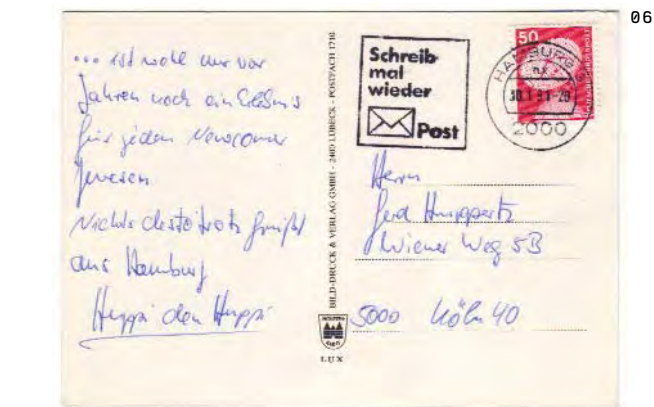 06
... ist wohl nur vor
Jahren noch ein Erlebnis
für jeden Newcomer
gewesen
Nichts desto trotz grüßt
aus Hamburg
Huppi den Huppi
BILD-DRUCK & VERLAG GMBH - 2400 LÜBECK - POSTFACH 1710
LUX
Schreib
mal
wieder
Post
50
HAMBURG
2000
Herrn
Gerd Huppertz
Wiener Weg 5B
5000 Köln 40